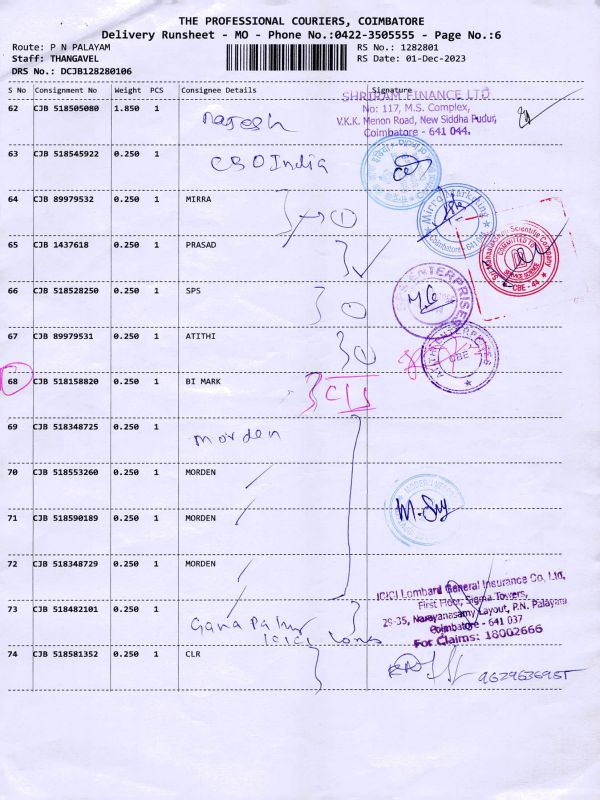 THE PROFESSIONAL COURIERS, COIMBATORE
Delivery Runsheet - MO - Phone No.:0422-3505555 - Page No.:6
Route: P N PALAYAM
Staff: THANGAVEL
DRS No.: DCJB128280106
RS No.: 1282801
RS Date: 01-Dec-2023
S No Consignment No Weight PCS Consignee Details Signature
62 CJB 518505080 1.850 1 Nagesh
SHRIRAM FINANCE LTD
No: 117, M.S. Complex,
V.K.K. Menon Road, New Siddha Pudur,
Coimbatore - 641 044.
63 CJB 518545922 0.250 1 CSO India
64 CJB 89979532 1 0.250 MIRRA 1
Mirra Marketing
Coimbatore
65 CJB 1437618 0.250 1 PRASAD
Sri Mahalakshmi Scientific Company
COMMITTED TO
CBE - 44
66 CJB 518528250 0.250 1 SPS
ENTERPRISES
67 CJB 89979531 0.250 1 ATITHI 1
CBE
68 CJB 518158820 0.250 1 BI MARK
69 CJB 518348725 0.250 1 Morden
70 CJB 518553260 0.250 1 MORDEN
71 CJB 518590189 0.250 1 MORDEN
72 CJB 518348729 0.250 1 MORDEN
73 CJB 518482101 0.250 1 Ganapathy
icici Lom
ICICI Lombard General Insurance Co. Ltd,
First Floor, Sigma Towers,
29-35, Narayanasamy Layout, P.N. Palayam
Coimbatore - 641 037
For Claims: 18002666
74 CJB 518581352 0.250 1 CLR